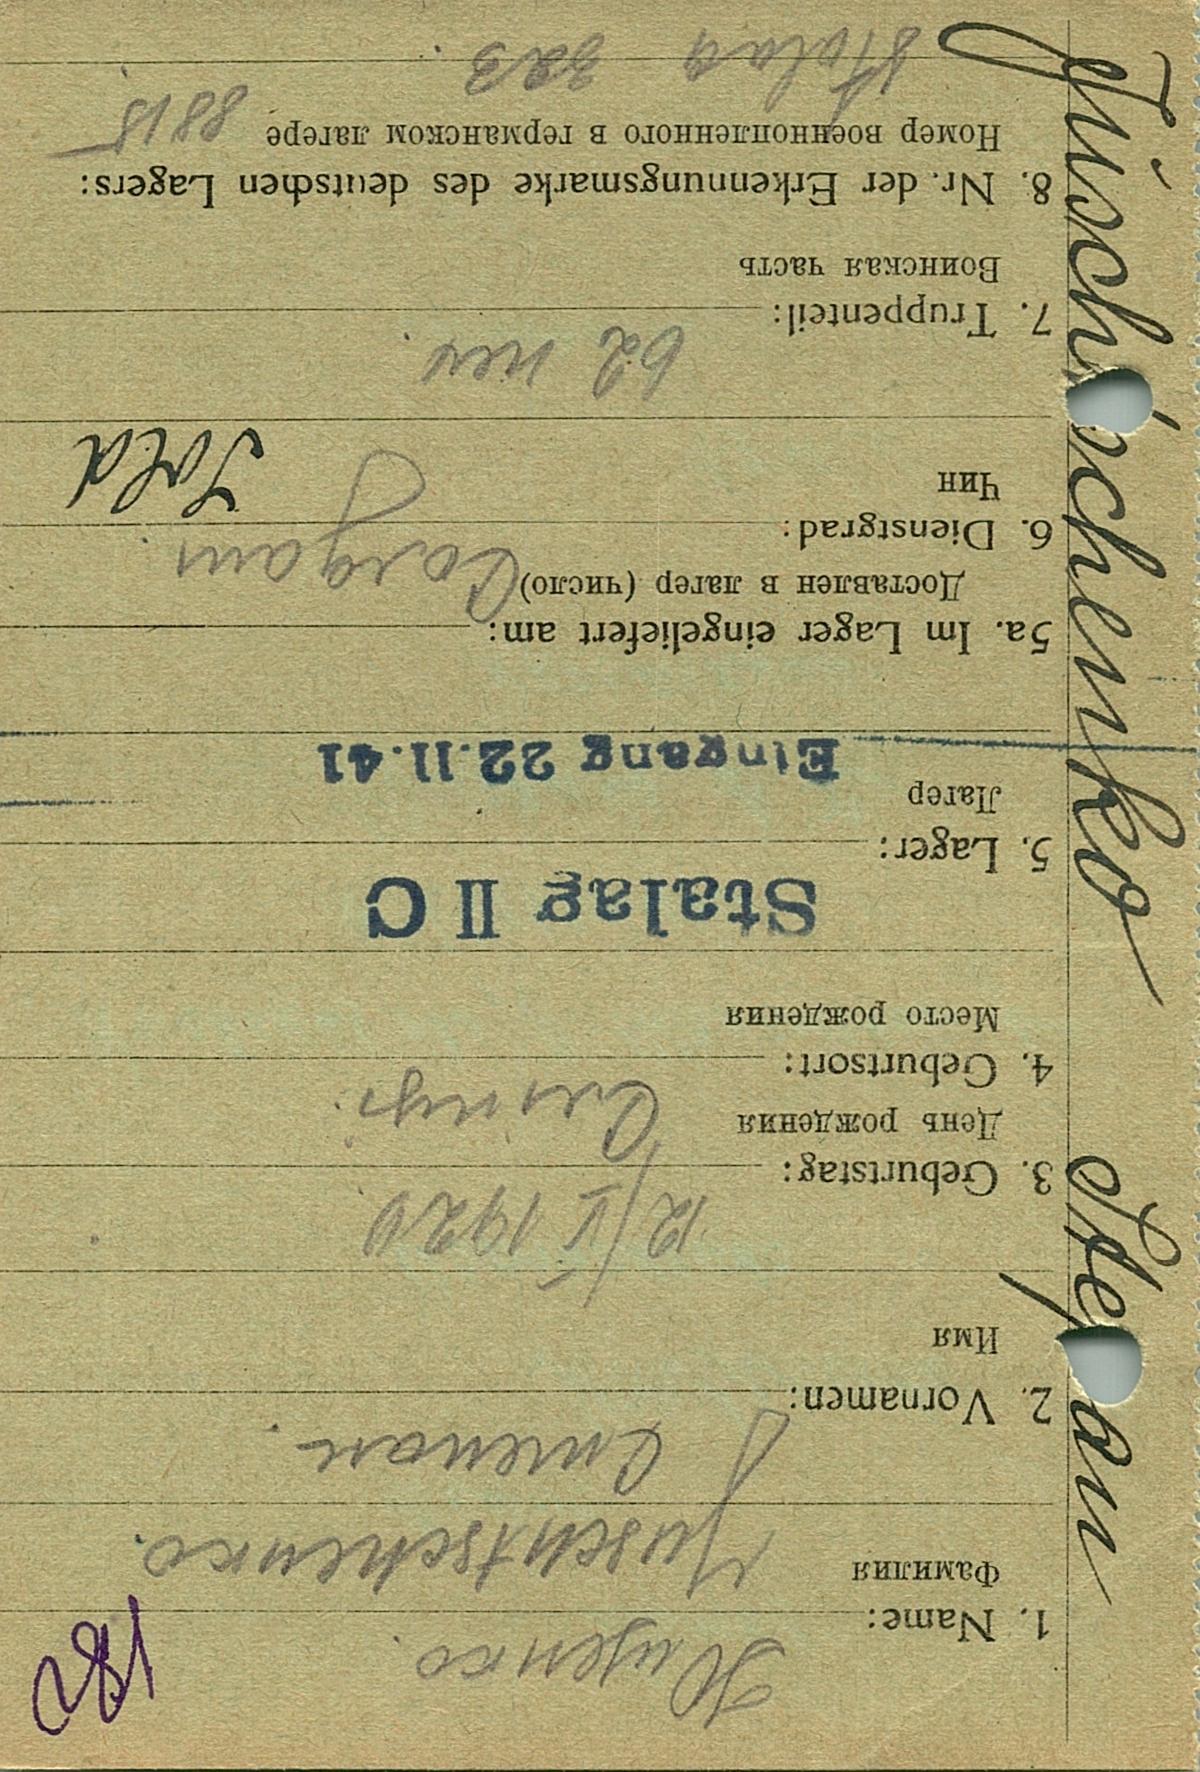 182
Ющенко.
1. Name:
Фамилия
Juschtschenko.
Степан
2. Vornamen:
Имя
12/V 1920
3. Geburtstag:
День рождения
4. Geburtsort:
Место рождения
Stalag II C
5. Lager:
Лагер
Eingang 22.11.41
5a. Im Lager eingeliefert am:
Доставлен в лагер (число)
Солдат
6. Dienstgrad:
Чин
Sold
62
7. Truppenteil:
Воинская часть
8. Nr. der Erkennungsmarke des deutschen Lagers:
Номер военнопленного в германском лагере
8815
Stalag 323.
Juschtschenko Stepan